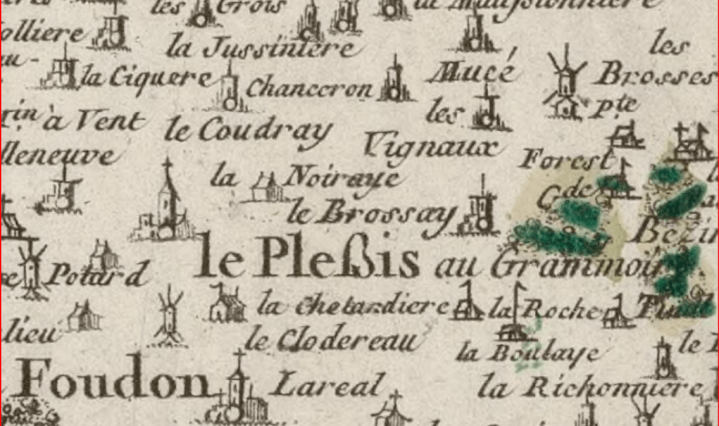 les Grois
olliere
la Jussiniere
les
la Ciquere
Chanceron
Mucé
Brosses
à Vent
le Coudray
les
Vignaux
pte
lleneuve
la Noiraye
Forest
Gde
le Brossay
le Pleßis au Grammoir
Potard
la Chetardiere
la Roche
lieu
le Clodereau
la Boulaye
Foudon
Lareal
la Richonniere